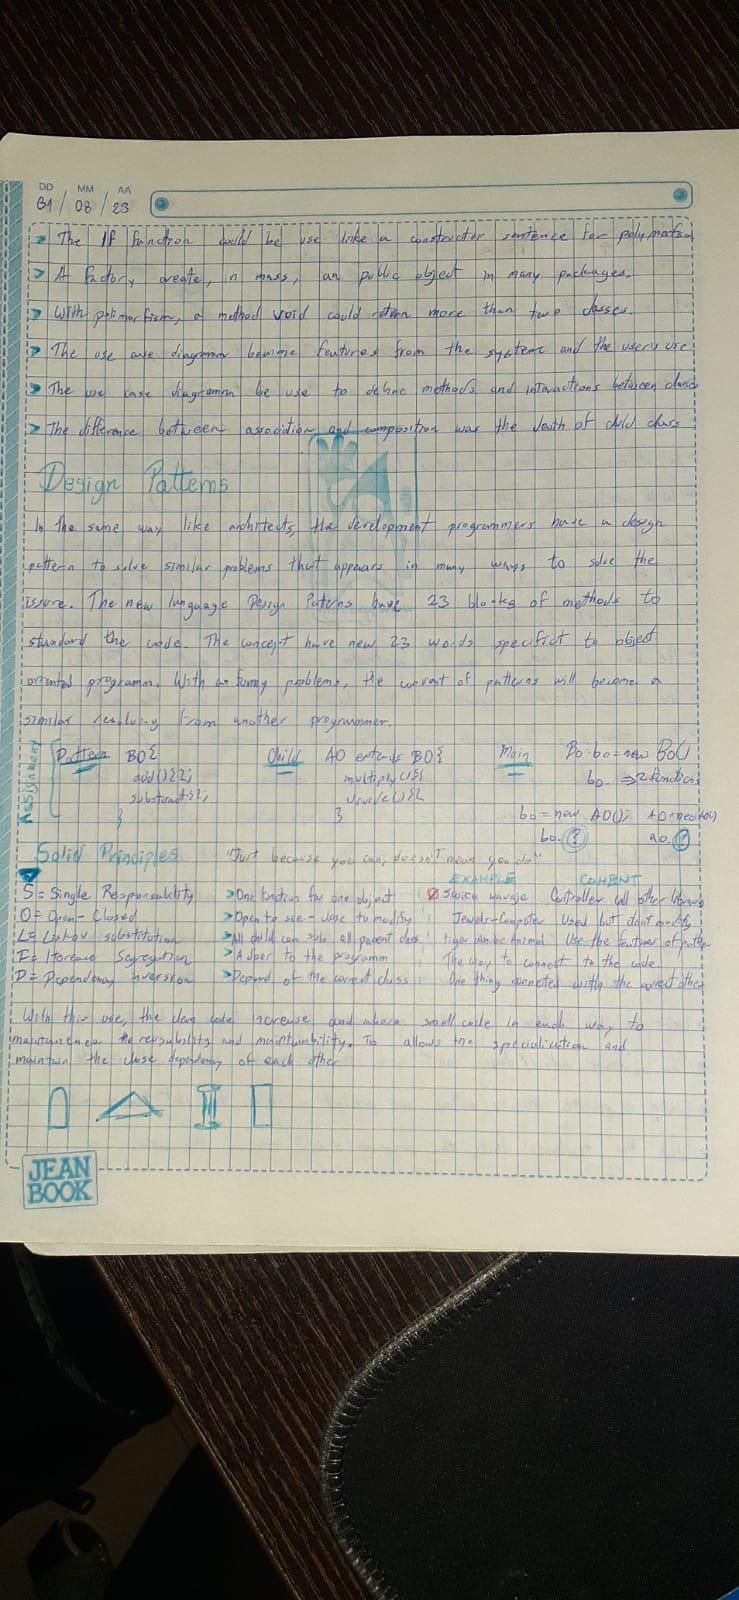 DD MM AA
31/08/23
The If function could be use linke a constructor sentence for
A factory create, in mass, an public object in many packages.
With a method void could return more than two classes.
The use case diagramm become features from the system and the user's use
The use case diagramm be use to define methods and interactions between class
The difference between asociation and composition was the death of child class
Design Patterns
In the same way like architects, the development programmers have a design
pattern to solve similar problems that appears in many ways to solve the
issure. The new language Design Paterns have 23 blocks of methods to
standard the code. The concept have new 23 words specifict to object
oriented programm. With funny problems, the of patterns will become a
similar resolving from another programmer.
Assignment
Pattern BO{ Child AO extends BO{ Main Bo bo = new BO()
add(){}; multiply(){} bo. => 2 functions
substract
} } bo = new AO(); AO =
bo. ? ao. ?
Solid Principles "Just because you can, doesn't mean you do"
EXAMPLE COMENT
S = Single Responsability One function for one object Swice navaje Controller call other
O = Open - Closed Open to see - close to modify Jewels - Computer Used but dont modify
L = substitution All child can sub all parent class tiger can be Animal Use the features of
I = Segregation A door to the programm The way to connect to the code
D = Dependency inversion Depend of the correct class One thing with the correct
With this use, the clean code increase and above small code in each way to
the reusability and maintainbility. To allows the specialication and
maintain the close dependency of each other
JEAN
BOOK